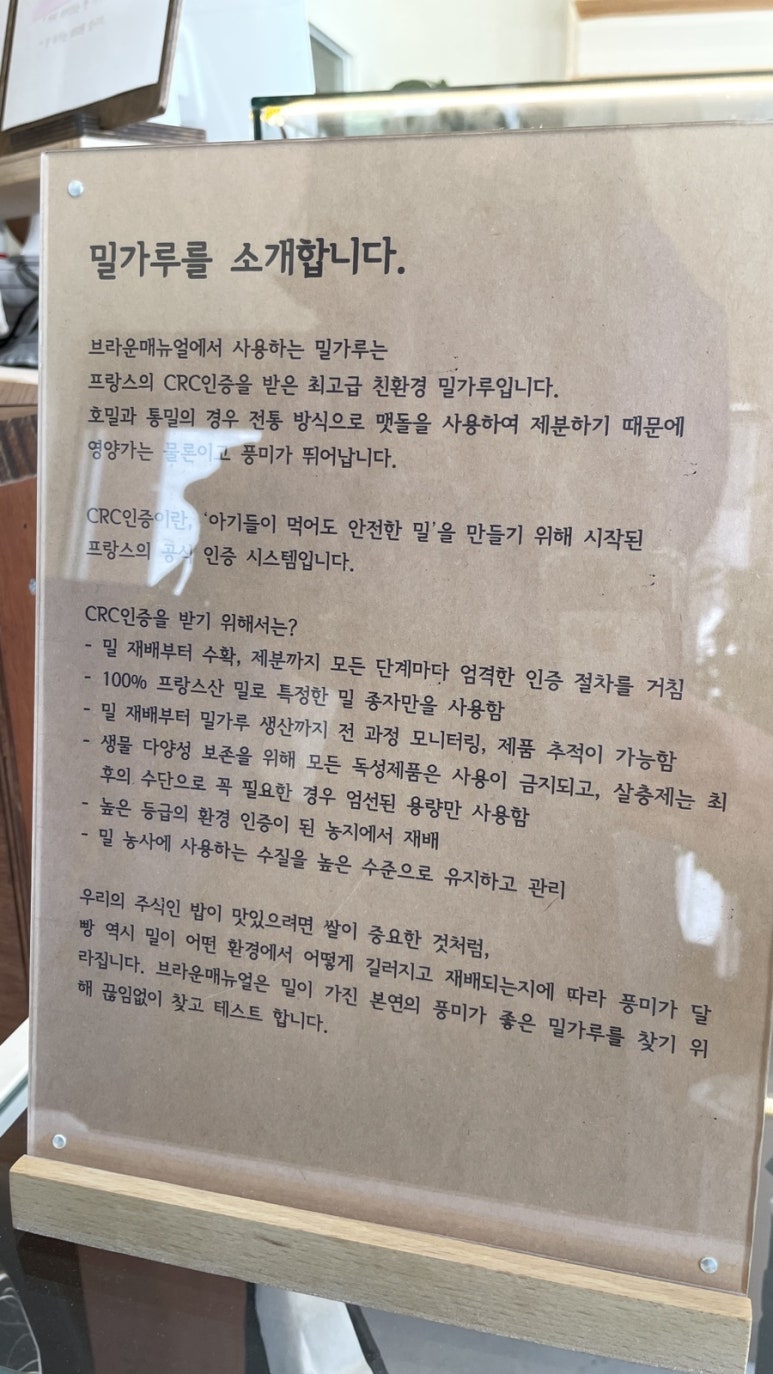 밀가루를 소개합니다.
브라운매뉴얼에서 사용하는 밀가루는
프랑스의 CRC인증을 받은 최고급 친환경 밀가루입니다.
호밀과 통밀의 경우 전통 방식으로 맷돌을 사용하여 제분하기 때문에
영양가는 물론이고 풍미가 뛰어납니다.
CRC인증이란, ‘아기들이 먹어도 안전한 밀’을 만들기 위해 시작된
프랑스의 공식 인증 시스템입니다.
CRC인증을 받기 위해서는?
- 밀 재배부터 수확, 제분까지 모든 단계마다 엄격한 인증 절차를 거침
- 100% 프랑스산 밀로 특정한 밀 종자만을 사용함
- 밀 재배부터 밀가루 생산까지 전 과정 모니터링, 제품 추적이 가능함
- 생물 다양성 보존을 위해 모든 독성제품은 사용이 금지되고, 살충제는 최
후의 수단으로 꼭 필요한 경우 엄선된 용량만 사용함
- 높은 등급의 환경 인증이 된 농지에서 재배
- 밀 농사에 사용하는 수질을 높은 수준으로 유지하고 관리
우리의 주식인 밥이 맛있으려면 쌀이 중요한 것처럼,
빵 역시 밀이 어떤 환경에서 어떻게 길러지고 재배되는지에 따라 풍미가 달
라집니다. 브라운매뉴얼은 밀이 가진 본연의 풍미가 좋은 밀가루를 찾기 위
해 끊임없이 찾고 테스트 합니다.